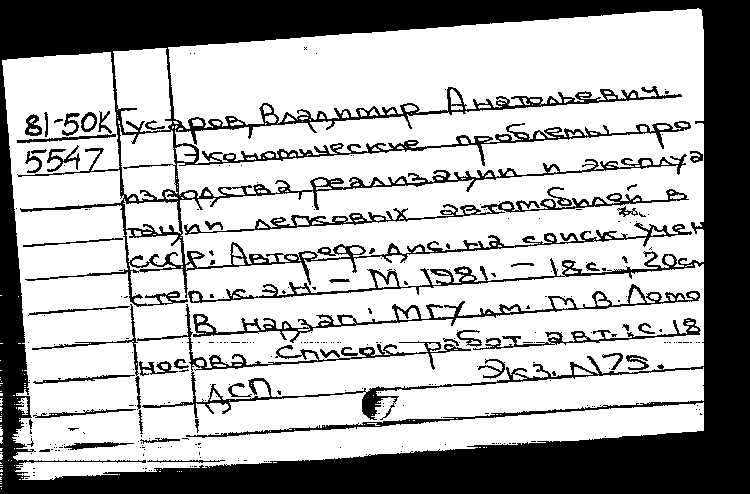 81-50К Гусаров, Владимир Анатольевич.
5547 Экономические проблемы про-
изводства, реализации и эксплуа
тации легковых автомобилей в
СССР: Автореф. дис. на соиск. учен
степ. к.э.н. - М., 1981. - 18 с.; 20 см
В надзаг: МГУ им. М.В. Ломо
носова. Список работ авт.: с. 18
ДСП. Экз. N75.